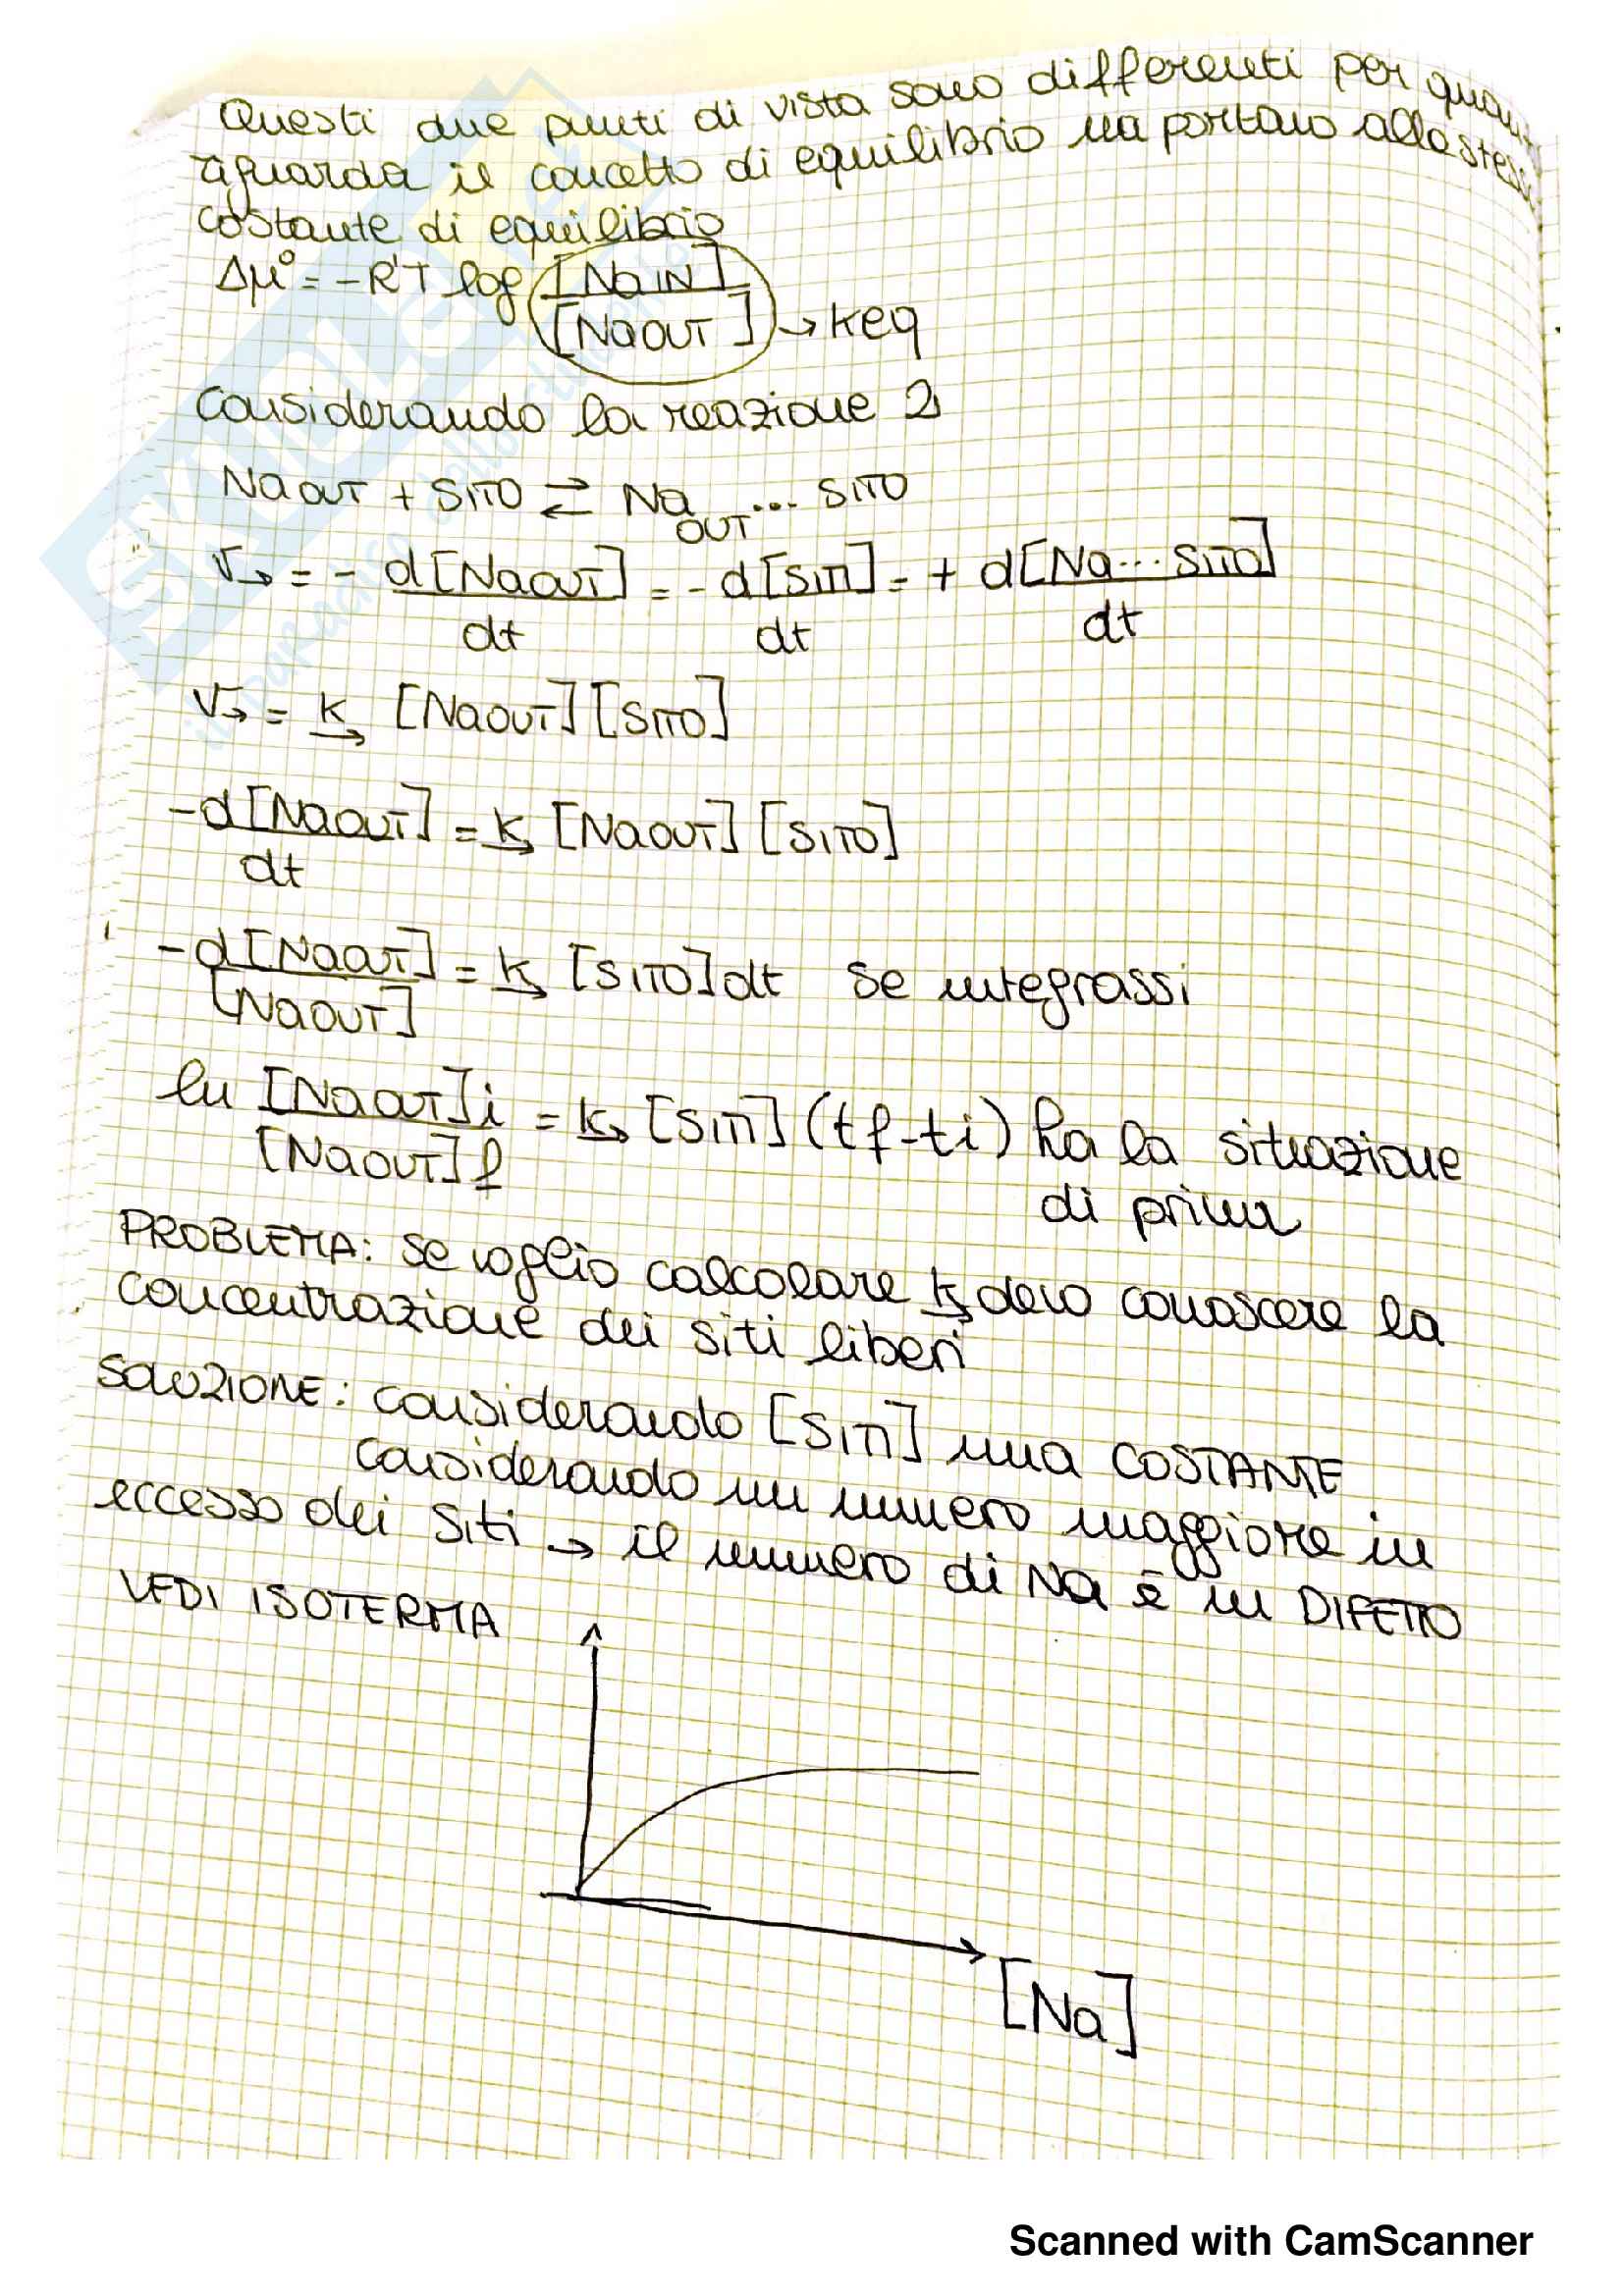 Questi due punti di vista sono differenti per quanto
riguarda il concetto di equilibrio ma portano alla stessa
costante di equilibrio
Δμ° = -R'T log [Na IN]
[Na OUT] → Keq
Considerando la reazione 2
Na OUT + SITO ⇄ Na OUT ... SITO
V→ = - d[Na OUT] = - d[SITI] = + d[Na... SITO]
dt dt dt
V→ = k→ [Na OUT][SITO]
-d[Na OUT] = k→ [Na OUT][SITO]
dt
-d[Na OUT] = k→ [SITO]dt se integrassi
[Na OUT]
ln [Na OUT]i = k→ [SITI] (tf-ti) ha la situazione
[Na OUT]f di prima
PROBLEMA: se voglio calcolare k→ devo conoscere la
concentrazione dei siti liberi
SOLUZIONE: considerando [SITI] una COSTANTE
considerando un numero maggiore in
eccesso dei siti → il numero di Na è in DIFETTO
VEDI ISOTERMA
[Na]
SKUOLA.net
Scanned with CamScanner